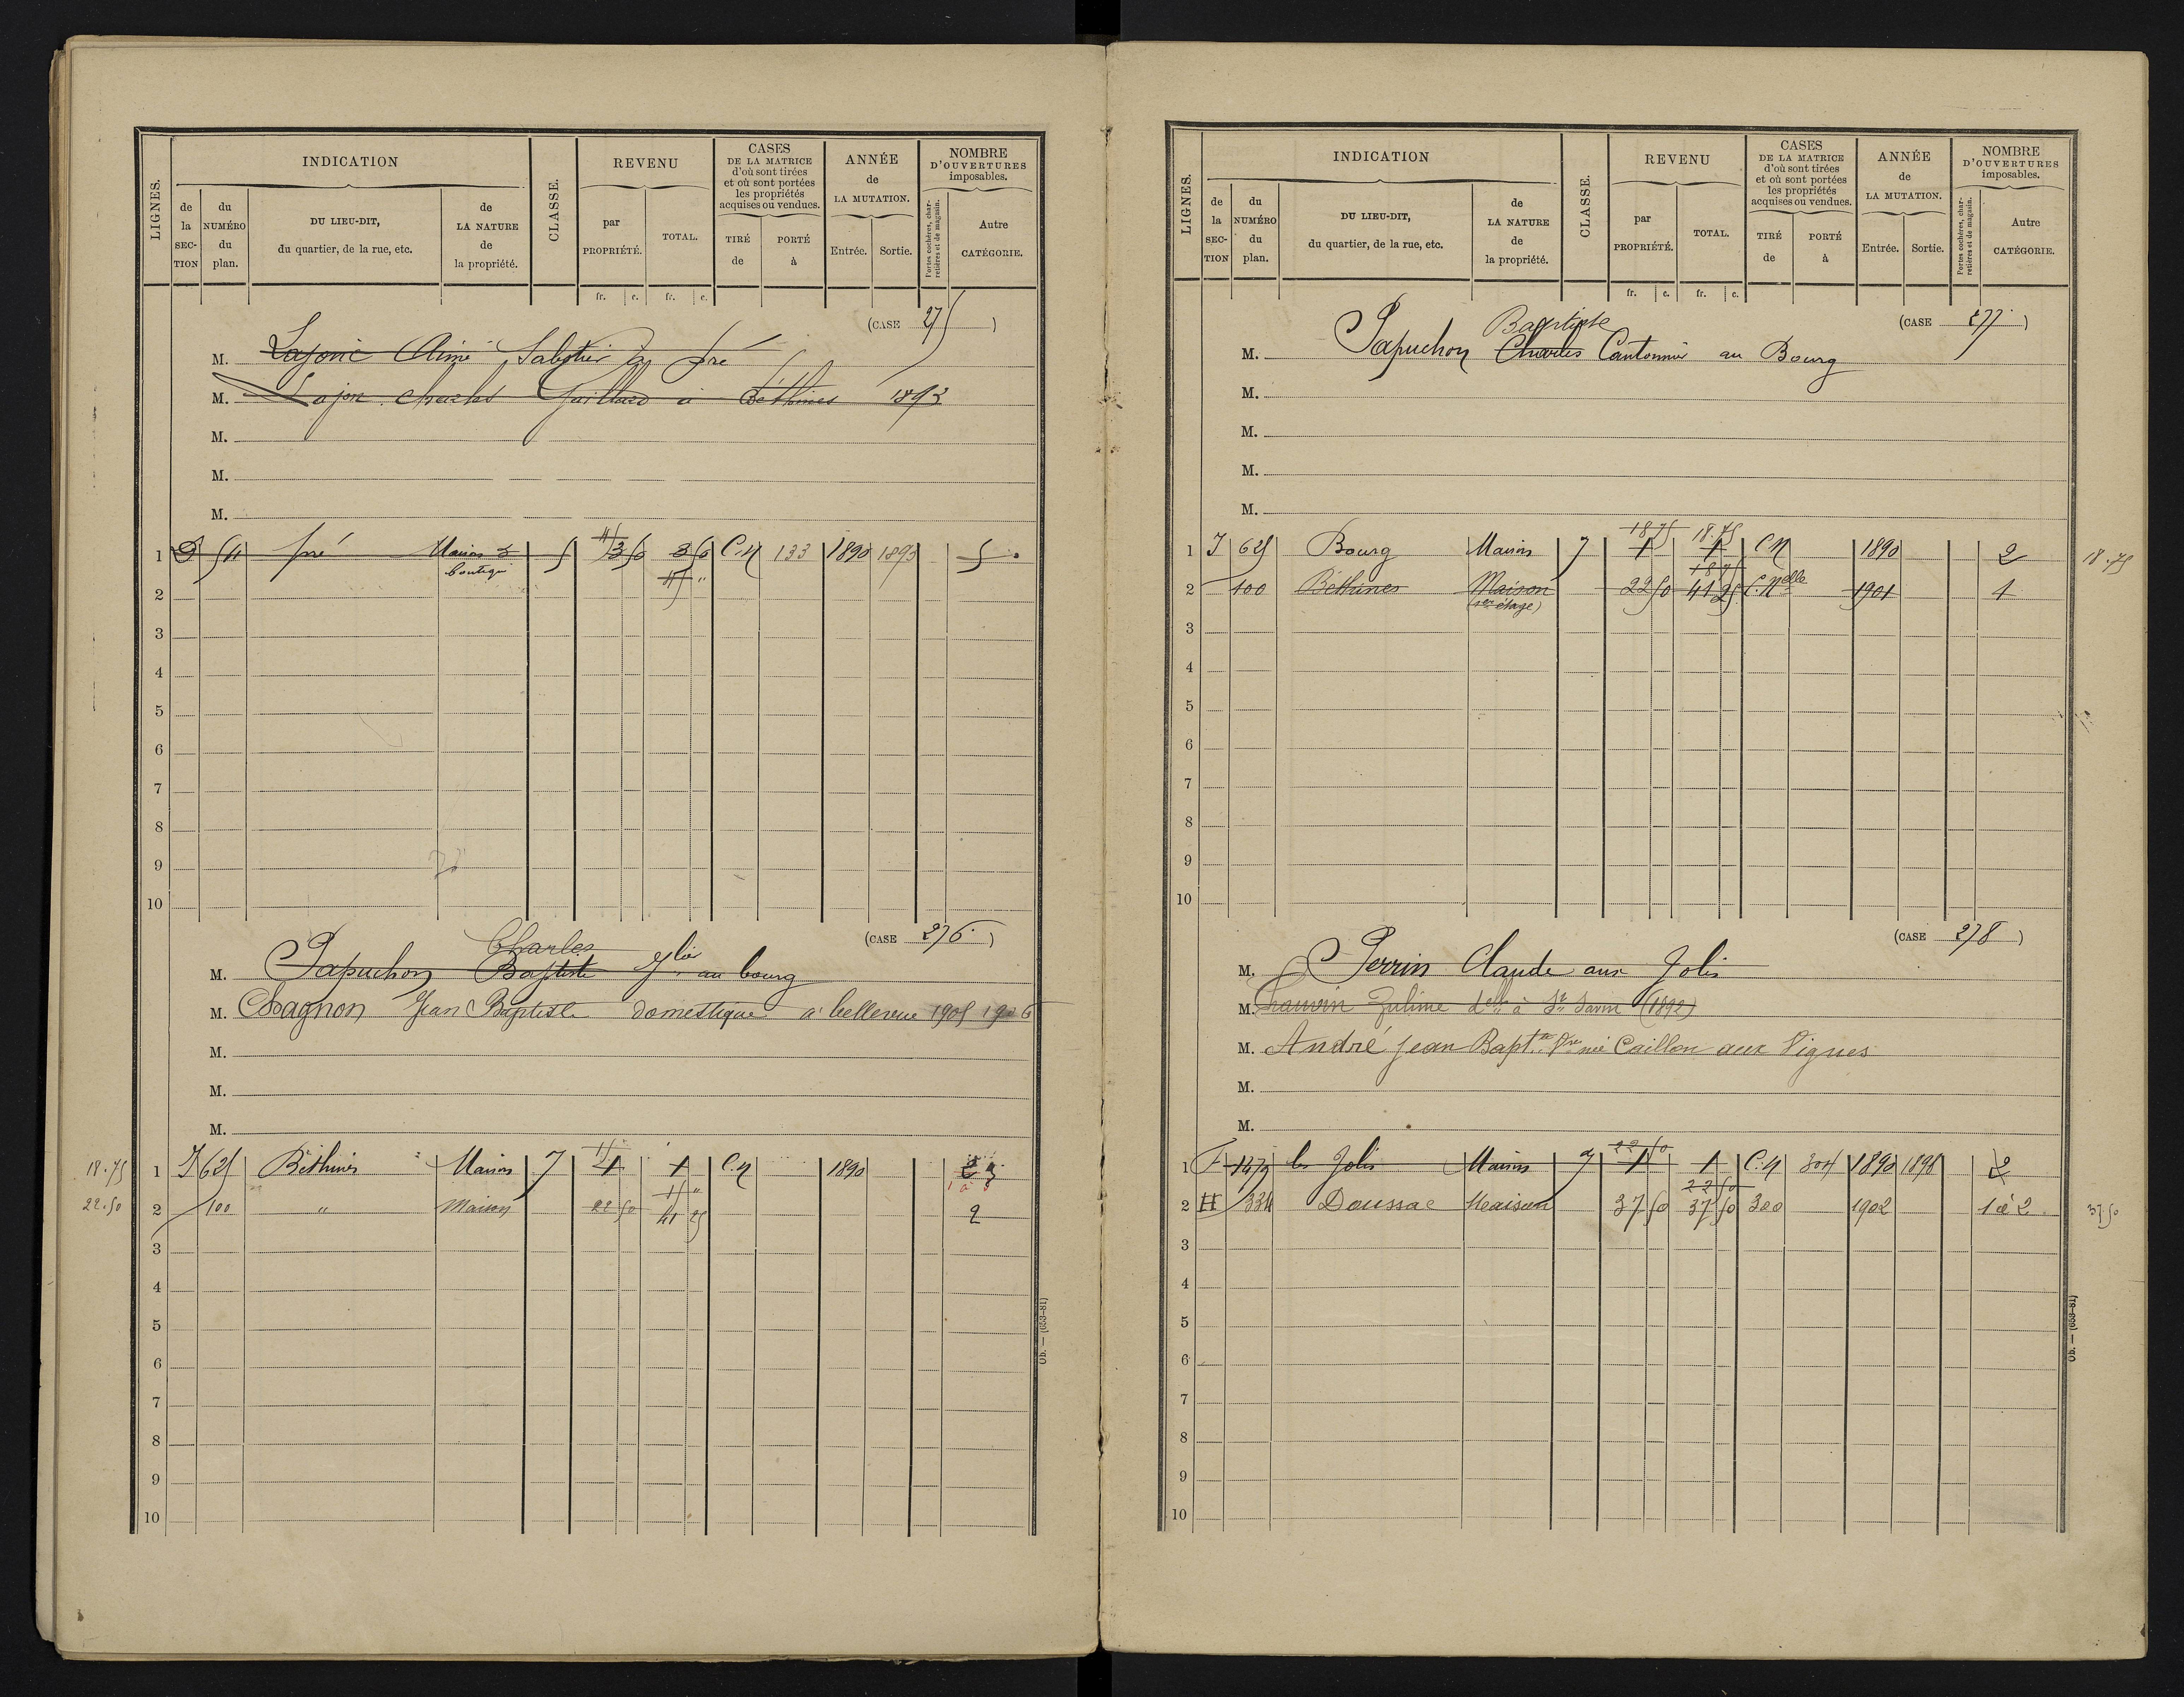 LIGNES.
INDICATION
de la SECTION
du NUMÉRO du plan.
DU LIEU-DIT, du quartier, de la rue, etc.
de LA NATURE de la propriété.
CLASSE.
REVENU
par PROPRIÉTÉ.
TOTAL.
fr. c. fr. c.
CASES DE LA MATRICE d'où sont tirées et où sont portées les propriétés acquises ou vendues.
TIRÉ de
PORTÉ à
ANNÉE de LA MUTATION.
Entrée. Sortie.
NOMBRE D'OUVERTURES imposables.
Portes cochères, charretières et de magasin.
Autre CATÉGORIE.
(CASE 275)
M. Lajonie Aimé Sabotier pré
M. Lajon Charles à Béthines 1893
M.
M.
M.
1 54 pré Maison & 5 45 3 50 3 50 C.N 133 1890 1893 5
boutique 45 "
2
3
4
5
6
7
8
9
10
(CASE 276)
Charles
M. Papuchon Baptiste au bourg
M. Chagnon Jean Baptiste domestique à bellevue 1905 1906
M.
M.
M.
18.75 1 625 Béthines Maison 7 1 1 C.N 1890
22.50 2 100 " Maison 22 50 41 25 2
3
4
5
6
7
8
9
10
Ob. — (653-81)
LIGNES.
INDICATION
de la SECTION
du NUMÉRO du plan.
DU LIEU-DIT, du quartier, de la rue, etc.
de LA NATURE de la propriété.
CLASSE.
REVENU
par PROPRIÉTÉ.
TOTAL.
fr. c. fr. c.
CASES DE LA MATRICE d'où sont tirées et où sont portées les propriétés acquises ou vendues.
TIRÉ de
PORTÉ à
ANNÉE de LA MUTATION.
Entrée. Sortie.
NOMBRE D'OUVERTURES imposables.
Portes cochères, charretières et de magasin.
Autre CATÉGORIE.
(CASE 277)
Baptiste
M. Papuchon Charles Cantonnier au Bourg
M.
M.
M.
M.
18 75 18.75
1 625 Bourg Maison 7 1 1 C.N 1890 2 18.75
18 75
2 100 Béthines Maison 22 50 41 25 C.Nelle 1901 1
(1er étage)
3
4
5
6
7
8
9
10
(CASE 278)
M. Perrin Claude aux Jolis
M. Zulime delle à St Savin (1892)
M. André Jean Baptte Vve née Caillon aux Vignes
M.
M.
22 50
1 F 1479 les Jolis Maison 7 1 1 C.N 304 1890 1898 2
22 50
2 H 334 Doussac Maison 37 50 37 50 300 1902 1 à 2 37 50
3
4
5
6
7
8
9
10
Ob. — (653-81)